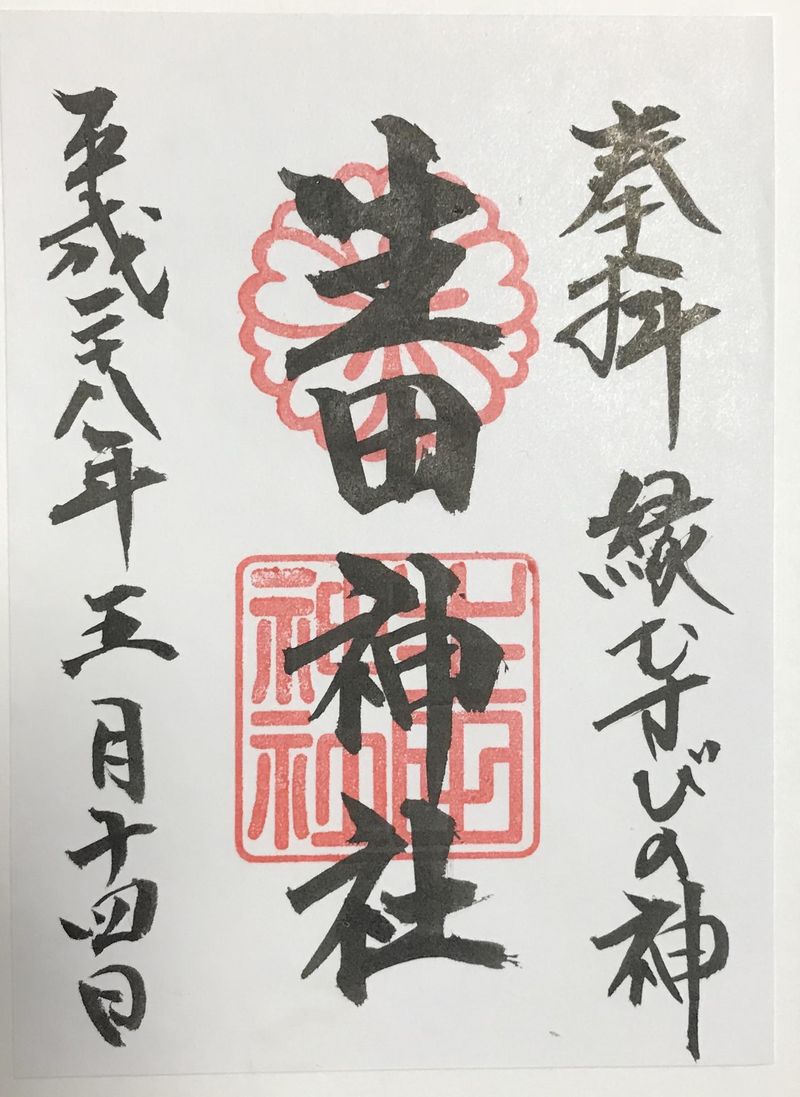 奉拝 縁むすびの神
生田神社
生田神社
平成二十八年五月十四日